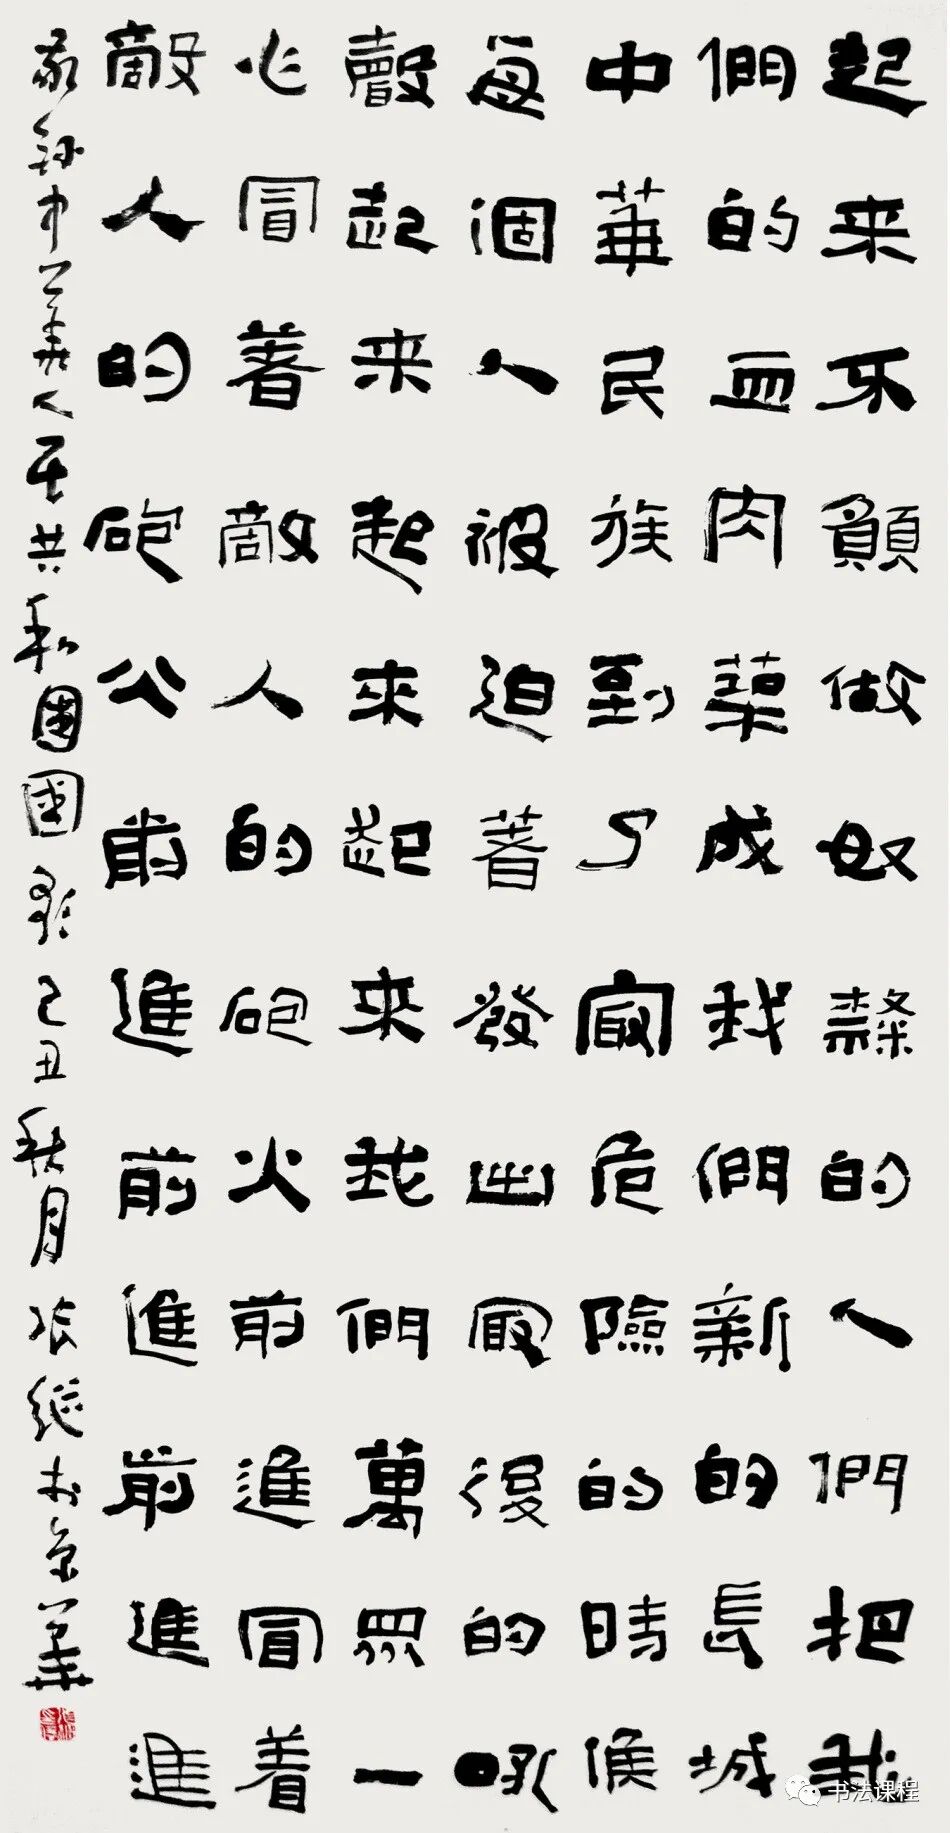 起来不願做奴隸的人們把我
們的血肉築成我們新的長城
中華民族到了最危險的時候
每個人被迫著發出最後的吼
聲起来起來起来我們萬眾一
心冒著敵人的砲火前進冒着
敵人的砲火前進前進前進進
敬錄中華人民共和國國歌己丑秋月張继书於京華
书法课程